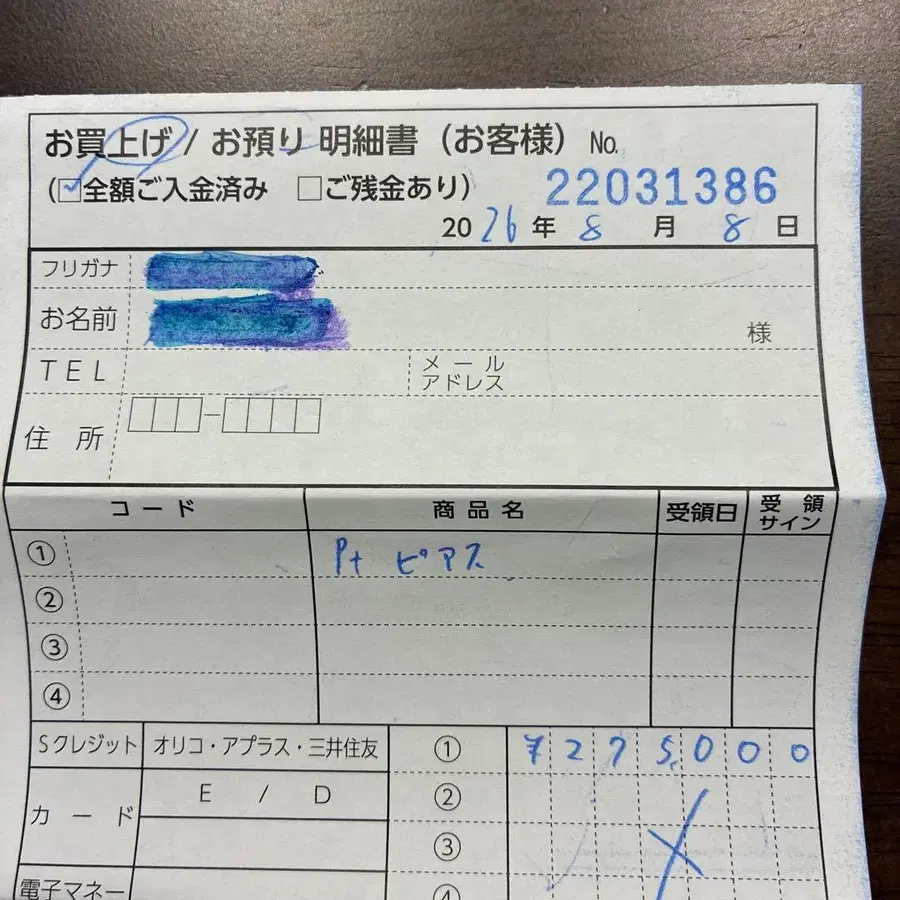 お買上げ / お預り 明細書(お客様) No.
(□全額ご入金済み □ご残金あり) 22031386
2026年 8月 8日
フリガナ
お名前 様
TEL メールアドレス
住所
コード 商品名 受領日 受領サイン
① Pt ピアス
②
③
④
Sクレジット オリコ・アプラス・三井住友 ① ¥275,000
カード E / D ②
③
電子マネー ④